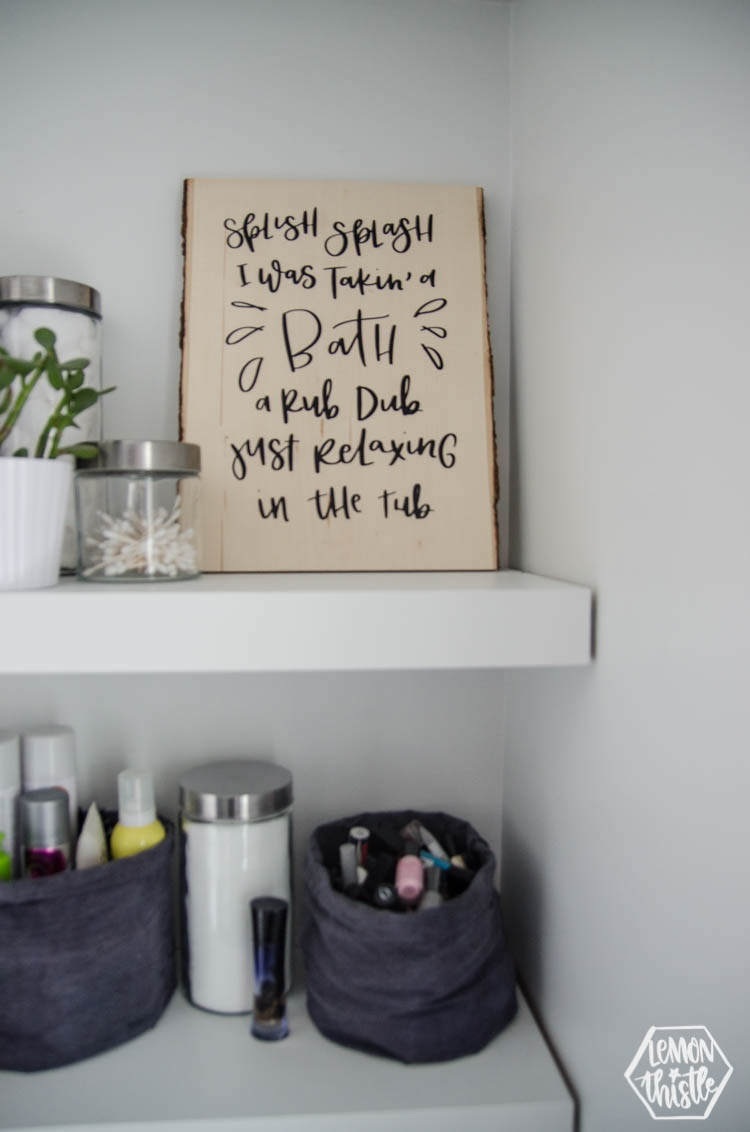 Splish Splash
I was Takin' a
Bath
a Rub Dub
just Relaxing
in the tub
Lemon
thistle